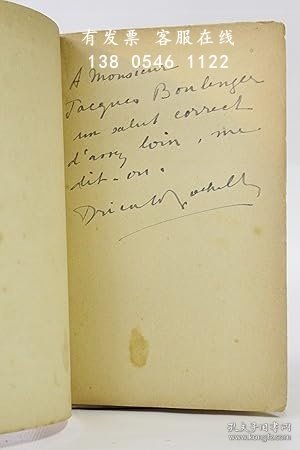 有发票 客服在线
138 0546 1122
A Monsieur
Jacques Boulenger
un salut correct
d'assez loin, me
dit-on.
Drieu la Rochelle
孔夫子旧书网